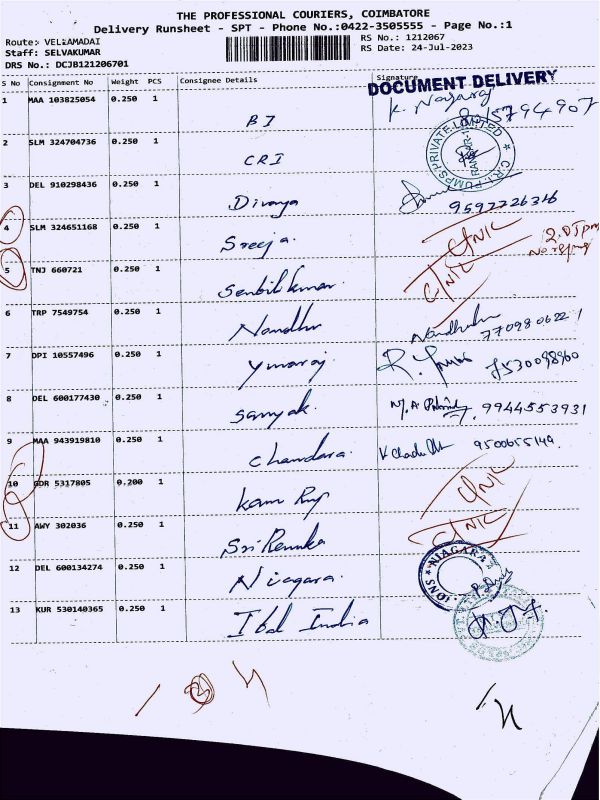 THE PROFESSIONAL COURIERS, COIMBATORE
Delivery Runsheet - SPT - Phone No.:0422-3505555 - Page No.:1
Route: VELLAMADAI
RS No.: 1212067
Staff: SELVAKUMAR
RS Date: 24-Jul-2023
DRS No.: DCJB121206701
S No Consignment No Weight PCS Consignee Details Signature
DOCUMENT DELIVERY
1 MAA 103825054 0.250 1 BJ K. Nagaraj
2 SLM 324704736 0.250 1 CRI C.R.I. PUMPS PRIVATE LIMITED
3 DEL 910298436 0.250 1 Divanya 9597726346
4 SLM 324651168 0.250 1 Sreeja. C/NIC
5 TNJ 660721 0.250 1 Senbilkumar C/NIC
6 TRP 7549754 0.250 1 Nandhu Nandhu 7709806221
7 DPI 10557496 0.250 1 Yuvaraj 7530098960
8 DEL 600177430 0.250 1 Samyak. 9944553931
9 MAA 943919810 0.250 1 Chandara. 9500655149.
10 GDR 5317805 0.200 1 Kam Raj C/NIC
11 AWY 302036 0.250 1 Sri Renuka C/NIC
12 DEL 600134274 0.250 1 Niagara. NIAGARA
13 KUR 530140365 0.250 1 Ibd India